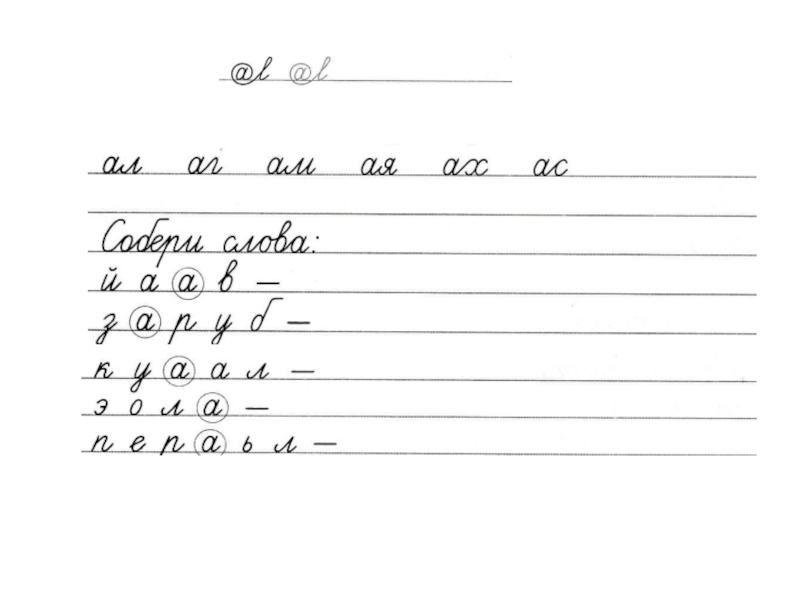 @l @l
ал аг ам ая ах ас
Собери слова:
й а а в —
з а р у б —
к у а а л —
э о л а —
п е р а ь л —